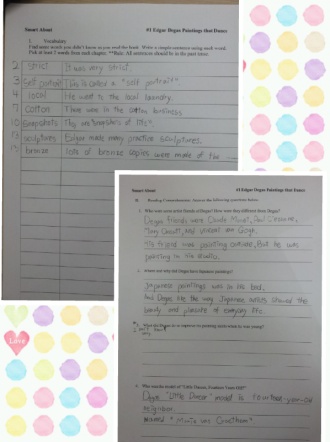 Smart About #1 Edgar Degas Paintings that Dance
I. Vocabulary
Find some words you didn't know as you read the book. Write a simple sentence using each word.
Pick at least 2 words from each chapter. **Rule: All sentences should be in the past tense.
2 strict It was very strict.
3 Self portrait This is called a "self portrait"
4 local He went to the local laundry.
7 Cotton There were in the cotton business
10 Snapshots The are snapshots of life.
sculptures Edgar made many practice sculptures.
bronze lots of bronze copies were made of the
Smart About #1 Edgar Degas Paintings that Dance
II. Reading Comprehension: Answer the following questions below.
Who were some artist friends of Degas? How were they different from Degas?
Degas friends were Claude Monet, Paul Cézanne,
Mary Cassatt, and Vincent van Gogh.
His friend were painting outside, But he was
painting in his studio.
Where and why did Degas love Japanese paintings?
Japanese paintings was in the
And Degas like the way Japanese artists showed the
beauty and pleasure of everyday life.
What did Degas do
Who was the model of "Little Dancer, Fourteen Years Old"?
Degas "Little Dancer" model is fourteen-year-old
neighbor.
named "Marie van Goethem"
Love